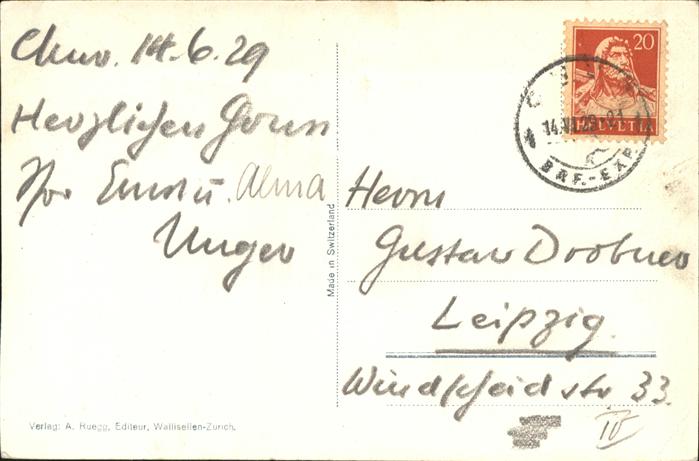 Chur. 14.6.29
Herzlichen Gruss
Ihr Ernst u. Alma
Unger
Made in Switzerland
Verlag: A. Ruegg, Editeur, Wallisellen-Zürich.
20
HELVETIA
14.VI.29
BRF.-EXP.
Herrn
Gustav Drobner
Leipzig.
Windscheidstr 33.
IV